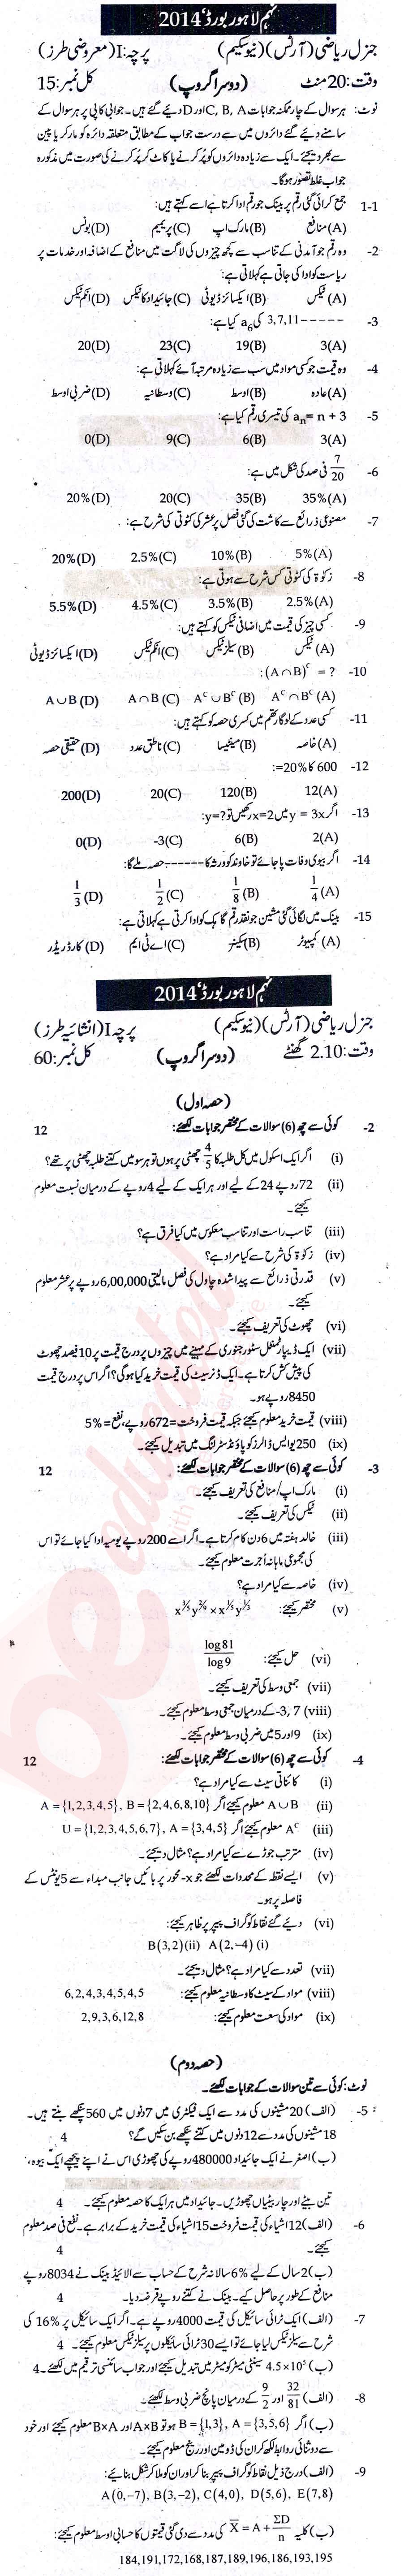 نہم لاہور بورڈ، 2014
جنرل ریاضی (آرٹس) (نیوسکیم) پرچہ: I (معروضی طرز)
وقت: 20 منٹ (دوسرا گروپ) کل نمبر: 15
نوٹ: ہر سوال کے چار ممکنہ جوابات C, B, A اور D دیئے گئے ہیں۔ جوابی کاپی پر ہر سوال کے
سامنے دیئے گئے دائروں میں سے درست جواب کے مطابق متعلقہ دائرہ کو مارکر یا پین
سے بھر دیجئے۔ ایک سے زیادہ دائروں کو پُر کرنے یا کاٹ کر پُر کرنے کی صورت میں مذکورہ
جواب غلط تصور ہوگا۔
1-1 جمع کرائی گئی رقم پر بینک جو رقم ادا کرتا ہے اسے کہتے ہیں:
(A) منافع (B) مارک اپ (C) پریمیم (D) بونس
-2 وہ رقم جو آمدنی کے تناسب سے کچھ چیزوں کی لاگت میں منافع کے اضافہ اور خدمات پر
ریاست کو ادا کی جاتی ہے کہلاتی ہے:
(A) ٹیکس (B) ایکسائز ڈیوٹی (C) جائیداد کا ٹیکس (D) انکم ٹیکس
-3 3,7,11----- کی a₆ کیا ہے:
3(A) 19(B) 23(C) 20(D)
-4 وہ قیمت جو کسی مواد میں سب سے زیادہ مرتبہ آئے کہلاتی ہے:
(A) عادہ (B) اوسط (C) وسطانیہ (D) ضربی اوسط
-5 aₙ = n + 3 کی تیسری رقم کیا ہے:
3(A) 6(B) 9(C) 0(D)
-6 7/20 فی صد کی شکل میں ہے:
35%(A) 35(B) 20(C) 20%(D)
-7 مصنوعی ذرائع سے کاشت کی گئی فصل پر عشر کی کٹوتی کی شرح ہے:
5%(A) 10%(B) 2.5%(C) 20%(D)
-8 زکوٰۃ کی کٹوتی کس شرح سے ہوتی ہے:
2.5%(A) 3.5%(B) 4.5%(C) 5.5%(D)
-9 کسی چیز کی قیمت میں اضافی ٹیکس کو کہتے ہیں:
(A) ٹیکس (B) سیلز ٹیکس (C) انکم ٹیکس (D) ایکسائز ڈیوٹی
-10 (A∩B)ᶜ = ? :
Aᶜ∩Bᶜ (A) Aᶜ∪Bᶜ (B) A∩B (C) A∪B (D)
-11 کسی عدد کے لوگارتھم میں کسری حصہ کو کہتے ہیں:
(A) خاصہ (B) مینٹیسا (C) ناطق عدد (D) حقیقی حصہ
-12 600 کا 20%=:
12(A) 120(B) 20(C) 200(D)
-13 اگر y = 3x میں x=2 رکھیں تو y=?:
2(A) 6(B) -3(C) 0(D)
-14 اگر بیوی وفات پا جائے تو خاوند کو ورثہ کا------حصہ ملے گا:
1/4 (A) 1/8 (B) 1/2 (C) 1/3 (D)
-15 بینک میں لگائی گئی مشین جو نقد رقم گاہک کو ادا کرتی ہے کہلاتی ہے:
(A) کمپیوٹر (B) سکینر (C) اے ٹی ایم (D) کارڈ ریڈر
نہم لاہور بورڈ، 2014
جنرل ریاضی (آرٹس) (نیوسکیم) پرچہ I (انشائیہ طرز)
وقت: 2.10 گھنٹے (دوسرا گروپ) کل نمبر: 60
(حصہ اول)
-2 کوئی سے چھ (6) سوالات کے مختصر جوابات لکھئے: 12
(i) اگر ایک اسکول میں کل طلبہ کا 4/5 چھٹی پر ہوں تو ہر سو میں کتنے طلبہ چھٹی پر تھے؟
(ii) 72 روپے 24 کے لیے اور ہر ایک کے لیے 4 روپے کے درمیان نسبت معلوم
کیجئے۔
(iii) تناسب راست اور تناسب معکوس میں کیا فرق ہے؟
(iv) زکوٰۃ کی شرح سے کیا مراد ہے؟
(v) قدرتی ذرائع سے پیدا شدہ چاول کی فصل مالیتی 6,00,000 روپے پر عشر معلوم
کیجئے۔
(vi) چھوٹ کی تعریف کیجئے۔
(vii) ایک ڈیپارٹمنٹل سٹور جنوری کے مہینے میں چیزوں پر درج قیمت پر 10 فیصد چھوٹ
کی پیش کش کرتا ہے۔ ایک ڈنر سیٹ کی قیمت خرید کیا ہوگی؟ اگر اس پر درج قیمت
8450 روپے ہو۔
(viii) قیمت خرید معلوم کیجئے جبکہ قیمت فروخت = 672 روپے، نفع = 5%
(ix) 250 یو ایس ڈالرز کو پاؤنڈ سٹرلنگ میں تبدیل کیجئے۔
-3 کوئی سے چھ (6) سوالات کے مختصر جوابات لکھئے: 12
(i) مارک اپ/منافع کی تعریف کیجئے۔
(ii) ٹیکس کی تعریف کیجئے۔
(iii) خالد ہفتہ میں 6 دن کام کرتا ہے۔ اگر اسے 200 روپے یومیہ ادا کیا جائے تو اس
کی مجموعی ماہانہ اُجرت معلوم کیجئے۔
(iv) خاصہ سے کیا مراد ہے؟
(v) مختصر کیجئے:
(vi) حل کیجئے: log81/log9
(vii) جمعی وسط کی تعریف کیجئے۔
(viii) -3, 7 کے درمیان جمعی وسط معلوم کیجئے۔
(ix) 9 اور 5 میں ضربی وسط معلوم کیجئے۔
-4 کوئی سے چھ (6) سوالات کے مختصر جوابات لکھئے: 12
(i) کائناتی سیٹ سے کیا مراد ہے؟
(ii) A∪B معلوم کیجئے اگر A = {1,2,3,4,5}, B = {2,4,6,8,10}
(iii) Aᶜ معلوم کیجئے اگر U = {1,2,3,4,5,6,7}, A = {3,4,5}
(iv) مترتب جوڑے سے کیا مراد ہے؟ مثال دیجئے۔
(v) ایسے نقطہ کے محددات لکھئے جو x-محور پر بائیں جانب مبداء سے 5 یونٹس کے
فاصلہ پر ہو۔
(vi) دیئے گئے نقاط کو گراف پیپر پر ظاہر کیجئے:
B(3,2)(ii) A(2,-4) (i)
(vii) تعدد سے کیا مراد ہے؟ مثال دیجئے۔
(viii) مواد کے سیٹ کا وسطانیہ معلوم کیجئے: 6,2,4,3,4,5,4,5
(ix) مواد کی سعت معلوم کیجئے: 2,9,3,6,12,8
(حصہ دوم)
نوٹ: کوئی سے تین سوالات کے جوابات لکھئے۔
-5 (الف) 20 مشینوں کی مدد سے ایک فیکٹری میں 7 دنوں میں 560 پنکھے بنتے ہیں۔
18 مشینوں کی مدد سے 12 دنوں میں کتنے پنکھے بن سکیں گے؟ 4
(ب) اصغر نے ایک جائیداد 480000 روپے کی چھوڑی اس نے اپنے پیچھے ایک بیوہ،
تین بیٹے اور چار بیٹیاں چھوڑیں۔ جائیداد میں ہر ایک کا حصہ معلوم کیجئے۔ 4
-6 (الف) 12 اشیاء کی قیمت فروخت 15 اشیاء کی قیمت خرید کے برابر ہے۔ نفع فی صد معلوم
کیجئے۔ 4
(ب) 2 سال کے لیے 6% سالانہ شرح کے حساب سے الائیڈ بینک نے 8034 روپے
منافع کے طور پر حاصل کیے۔ بینک نے کتنے روپے قرضہ دیا۔ 4
-7 (الف) ایک ٹرائی سائیکل کی قیمت 4000 روپے ہے۔ اگر ایک سائیکل پر 16% کی
شرح سے سیلز ٹیکس لیا جائے تو ایسے 30 ٹرائی سائیکلوں پر سیلز ٹیکس معلوم کیجئے۔ 4
(ب) 4.5 × 10⁵ سینٹی میٹر کو میٹر میں تبدیل کیجئے اور جواب سائنسی ترقیم میں لکھئے۔ 4
-8 (الف) 32/81 اور 9/2 کے درمیان پانچ ضربی وسط لکھئے۔
(ب) اگر B = {1,3}, A = {3,5,6} ہو تو A×B اور B×A معلوم کیجئے اور خود
سے دو ثنائی روابط لکھ کر ان کی ڈومین اور رینج معلوم کیجئے۔
-9 (الف) درج ذیل نقاط کو گراف پیپر بنا کر اور ان کو ملا کر شکل بنائیے:
A(0,-7), B(3,-2), C(4,0), D(5,6), E(7,8)
(ب) کلیہ X̅ = A + ΣD/n کی مدد سے دی گئی قیمتوں کا حسابی اوسط معلوم کیجئے:
184,191,172,168,187,189,196,186,193,195